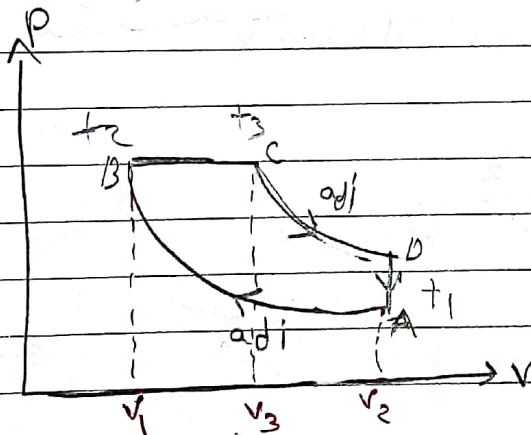 P
t2 t3
B C
adi
D
t1
A
adi
V
V1 V3 V2